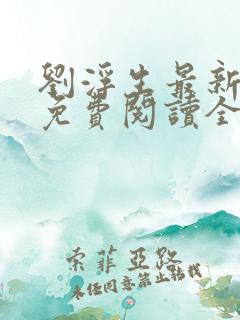 劉浮生最新
免費閱讀全
索菲亞路
未經同意禁止轉載